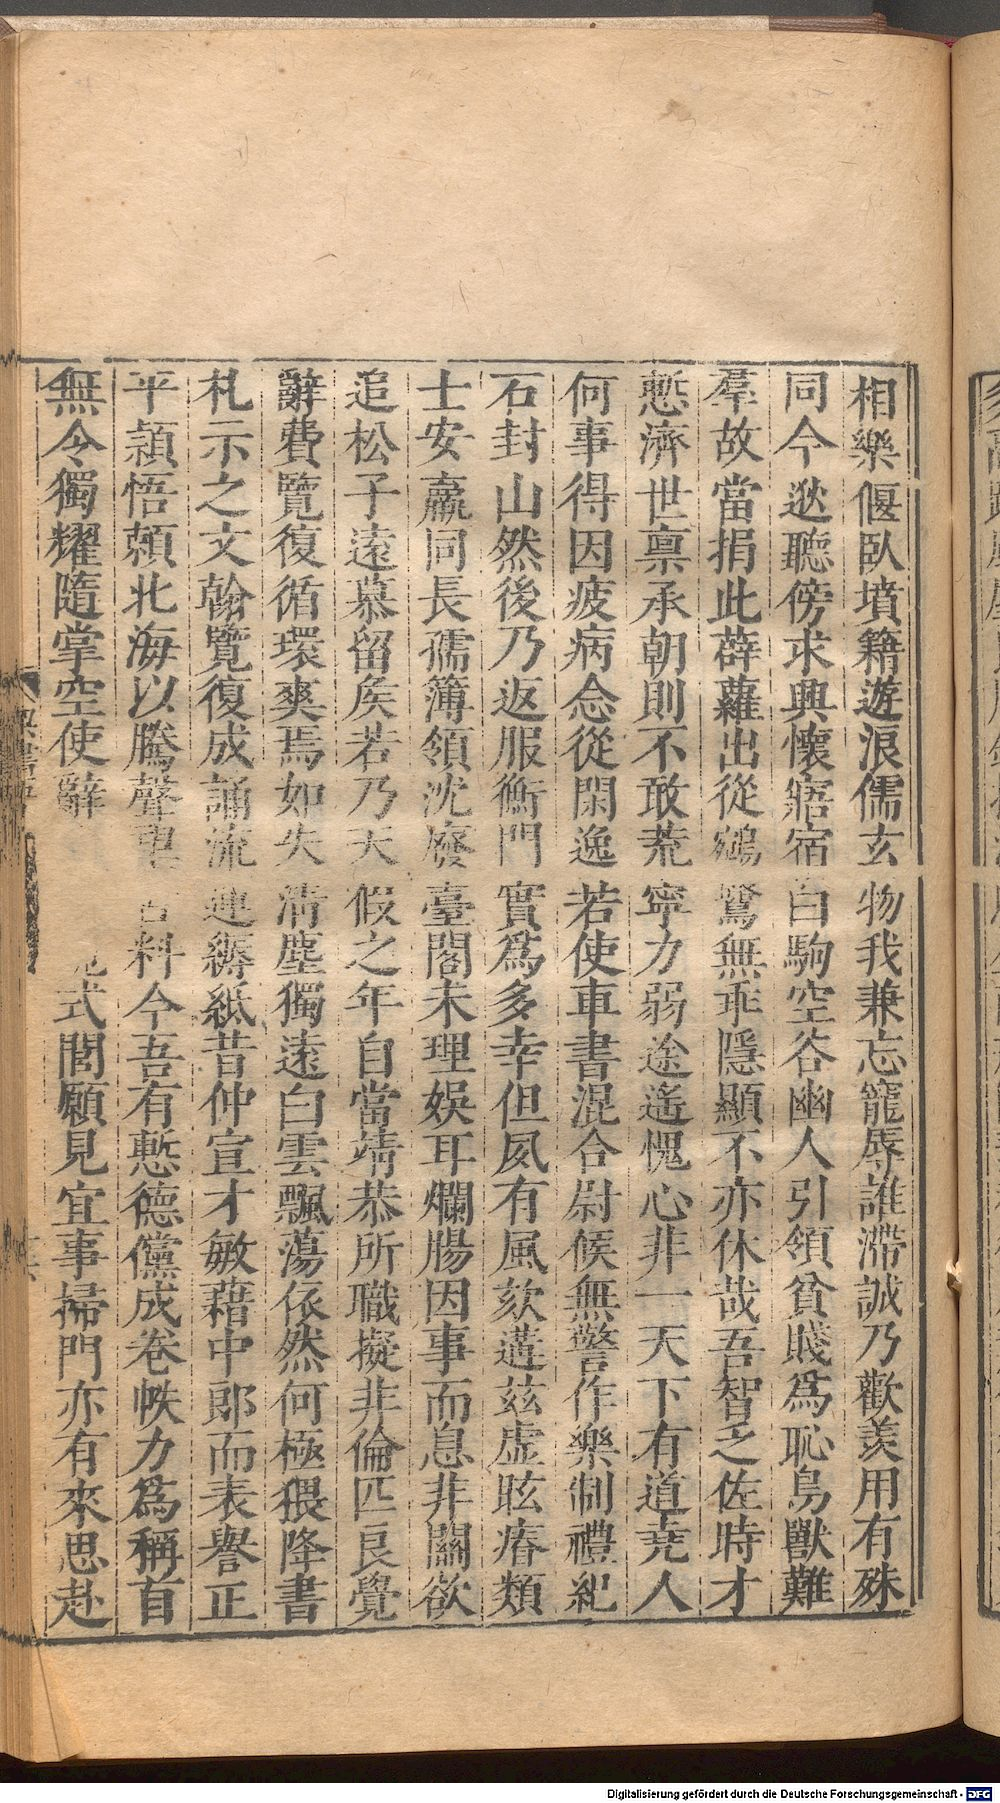 相樂偃臥墳籍遊浪儒玄物我兼忘寵辱誰滯誠乃歡羨用有殊
同今逖聽傍求興懷寤宿白駒空谷幽人引領貧賤爲恥鳥獸難
羣故當捐此薜蘿出從鵷鷺無乖隱顯不亦休哉吾智乏佐時才
慙濟世禀承朝則不敢荒寧力弱途遙愧心非一天下有道堯人
何事得因疲病念從閑逸若使車書混合尉候無警作樂制禮紀
石封山然後乃返服衡門實爲多幸但夙有風欬遘茲虛眩瘠類
士安羸同長孺簿領沈廢臺閣未理娛耳爛腸因事而息非關欲
追松子遠慕留矦若乃天假之年自當靖恭所職擬非倫匹良覺
辭費覽復循環爽焉如失清塵獨遠白雲飄蕩依然何極猥降書
札示之文翰覽復成誦流連縟紙昔仲宣才敏藉中郎而表譽正
平頴悟賴北海以騰聲 料今吾有慙德儻成卷帙力爲稱首
無令獨耀隨掌空使辭 式閭願見宜事掃門亦有來思赴
Digitalisierung gefördert durch die Deutsche Forschungsgemeinschaft - DFG